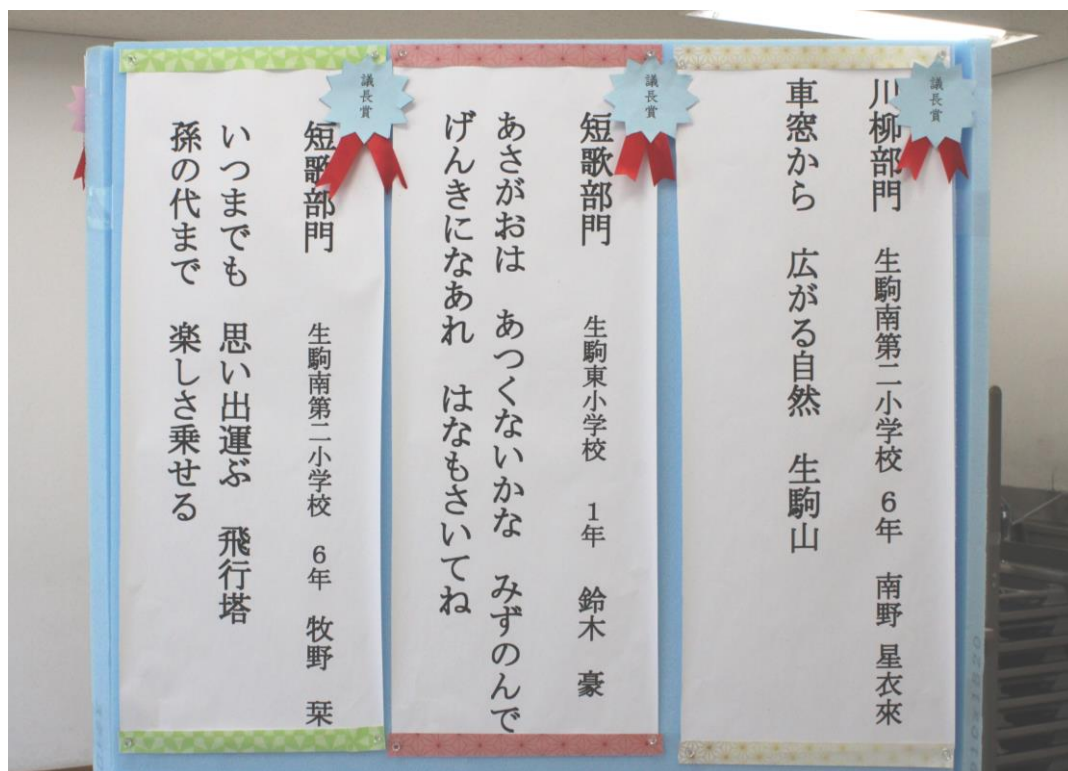 議長賞
川柳部門 生駒南第二小学校 6年 南野 星衣來
車窓から 広がる自然 生駒山
議長賞
短歌部門 生駒東小学校 1年 鈴木 豪
あさがおは あつくないかな みずのんで
げんきになあれ はなもさいてね
議長賞
短歌部門 生駒南第二小学校 6年 牧野 栞
いつまでも 思い出運ぶ 飛行塔
孫の代まで 楽しさ乗せる